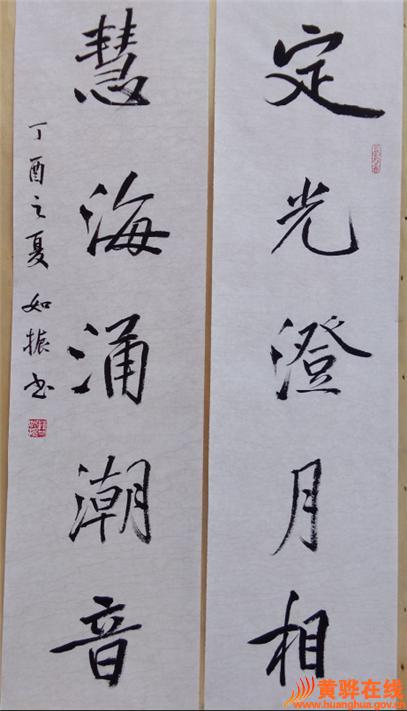 定光澄月相
慧海涌潮音
丁酉之夏如振书
黄骅在线
www.huanghua.gov.cn